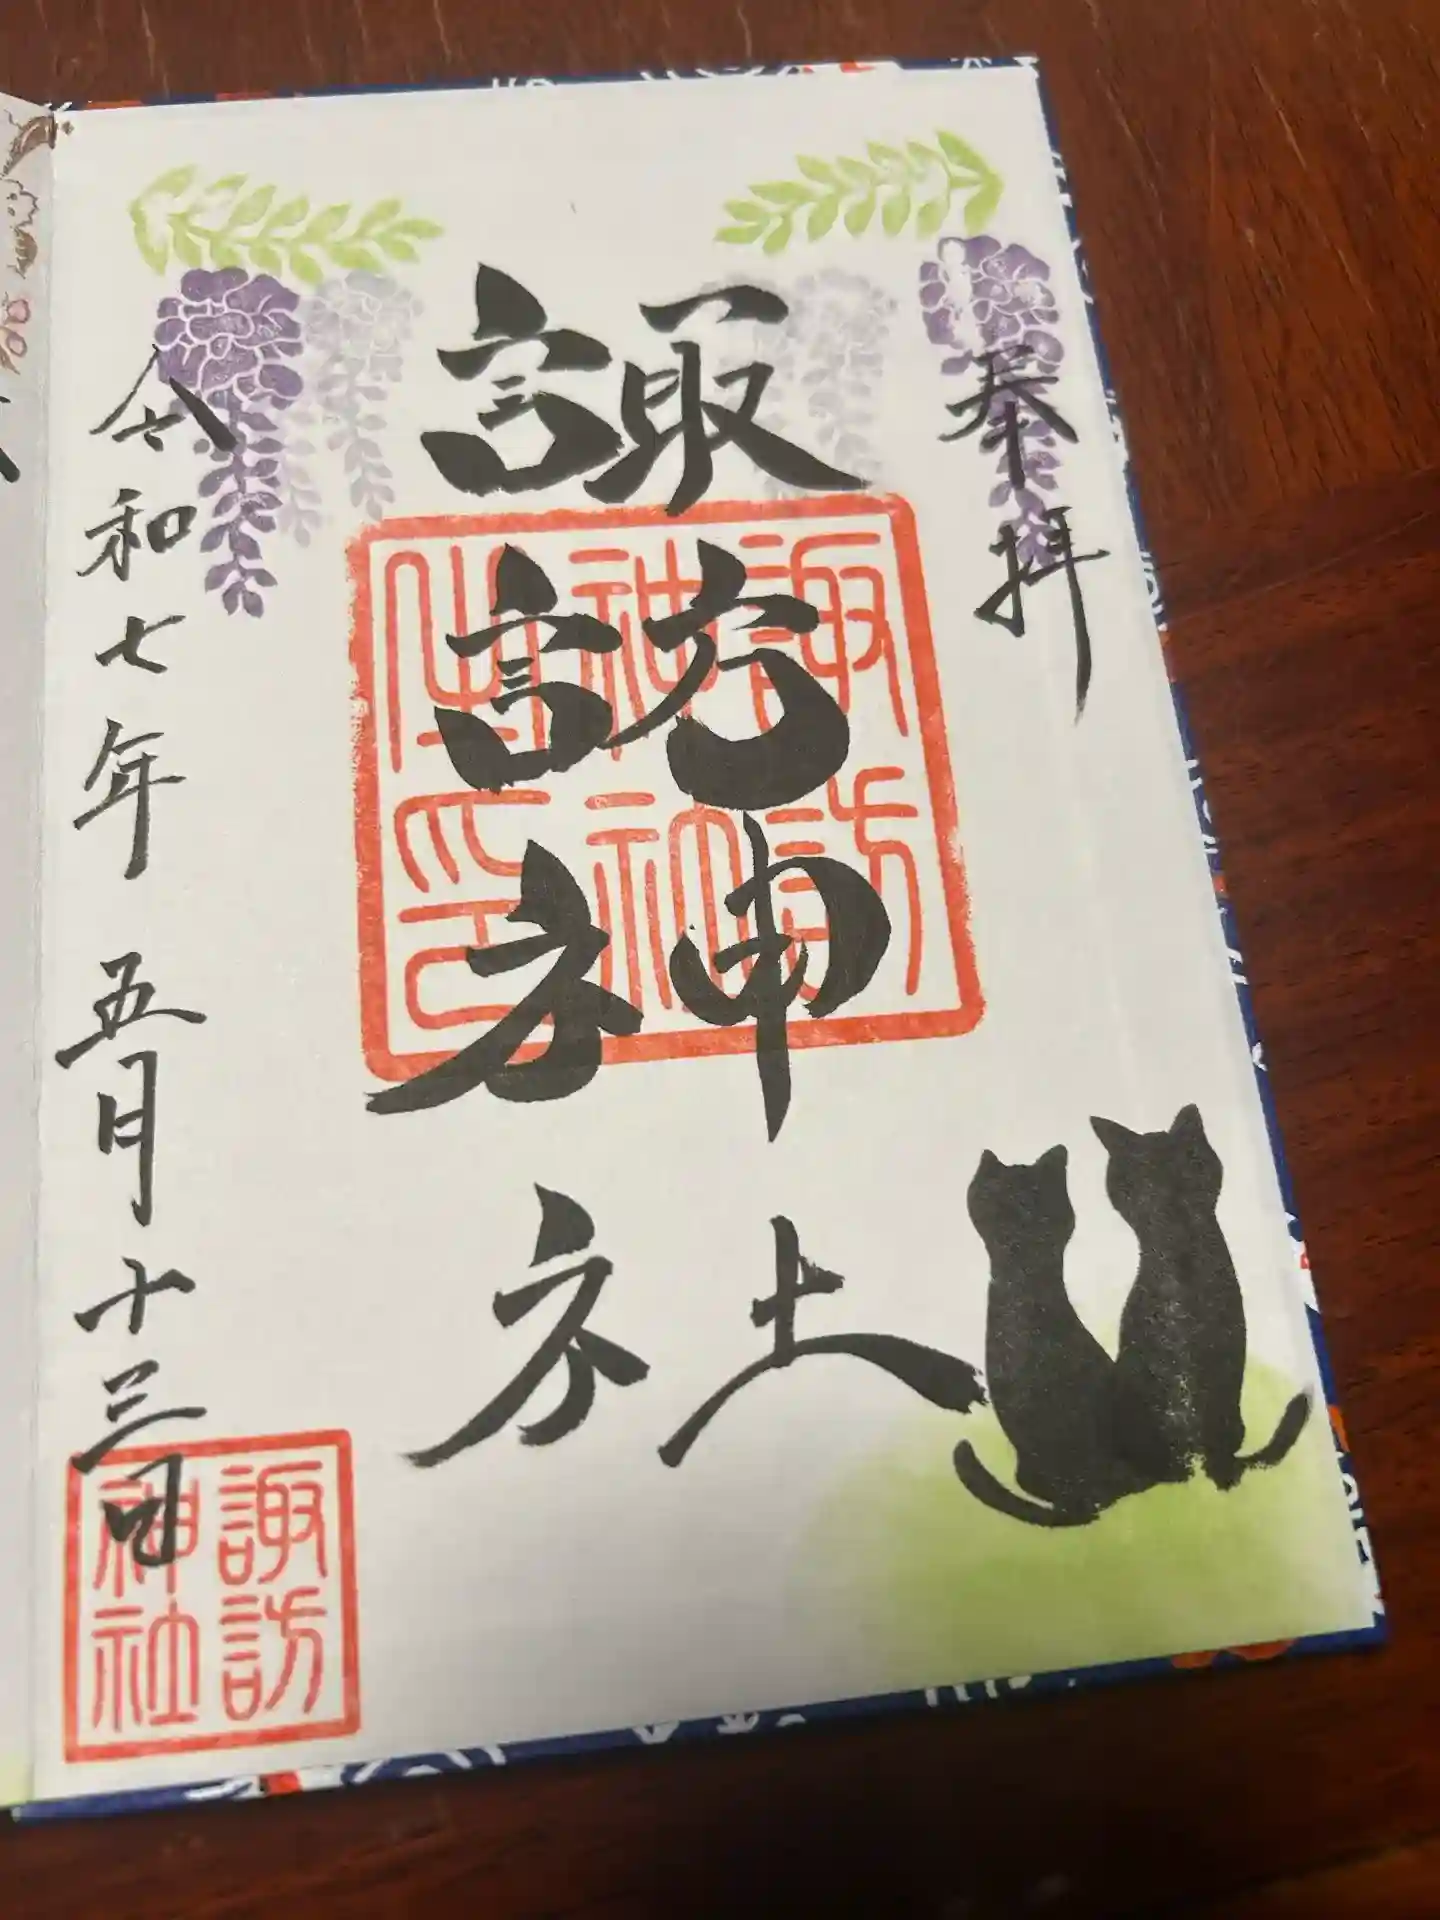 奉拝
諏訪神社
諏訪
神社
之印
令和七年 五月十三日
諏訪
神社